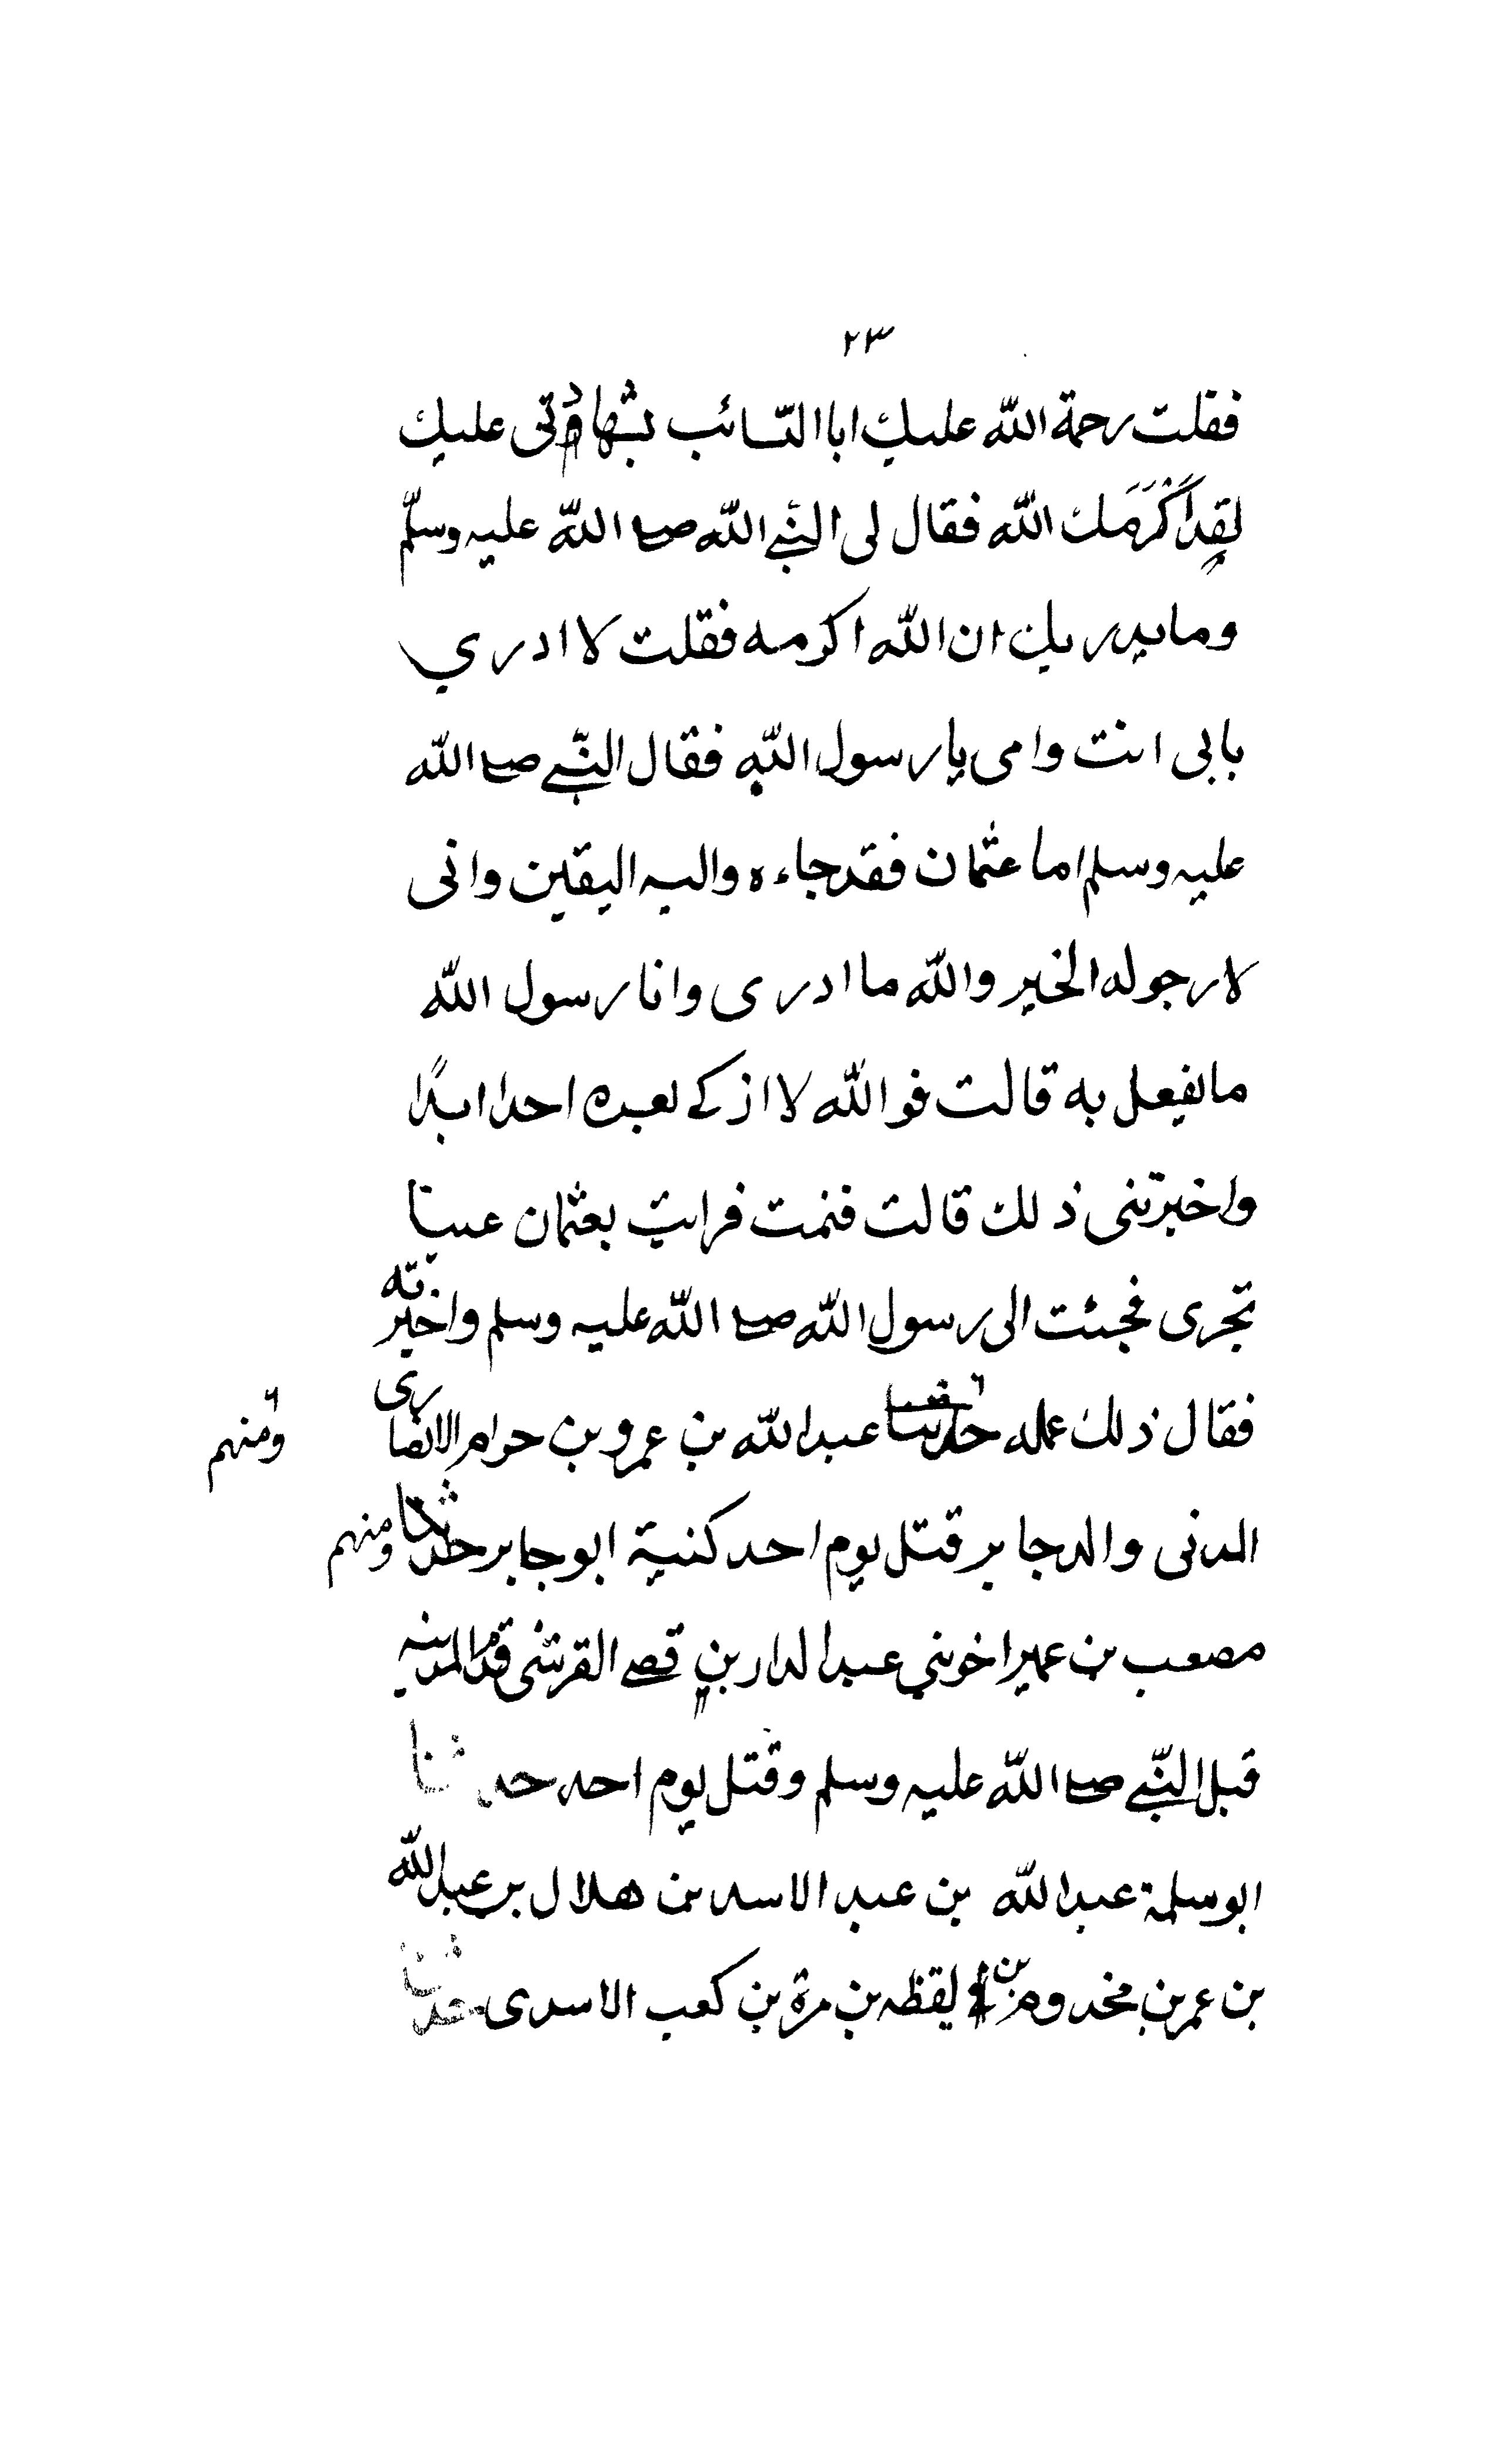 ٢٣
فقلت رحمة الله عليك ابا السائب بشهادتى عليك
لقد اَكْرَمَك الله فقال لى النبي الله صلى الله عليه وسلم
وما يدريك ان الله اكرمه فقلت لا ادري
بابى انت وامى يا رسول الله فقال النبي صلى الله
عليه وسلم اما عثمان فقد جاءه والله اليقين وانى
لارجو له الخير والله ما ادرى وانا رسول الله
ما يفعل به قالت فو الله لا ازكى بعده احدا ابدًا
واخبرتنى ذلك قالت فنمت فرايت بعثمان عينا
تجرى فجئت الى رسول الله صلى الله عليه وسلم واخبرته
فقال ذلك عمله حدثنا عبد الله بن عمرو بن حرام الانصارى
ومنهم
المدنى والد جابر قتل يوم احد كنية ابو جابر حدثنا ومنهم
مصعب بن عمير اخو بني عبد الدار بن قصى القرشى قدم المدينه
قبل النبي صلى الله عليه وسلم وقتل يوم احد حدثنا
ابو سلمة عبد الله بن عبد الاسد بن هلال بن عبد الله
بن عمر بن مخدوم بن لقظه بن مرة بن كعب الاسدى حدثنا